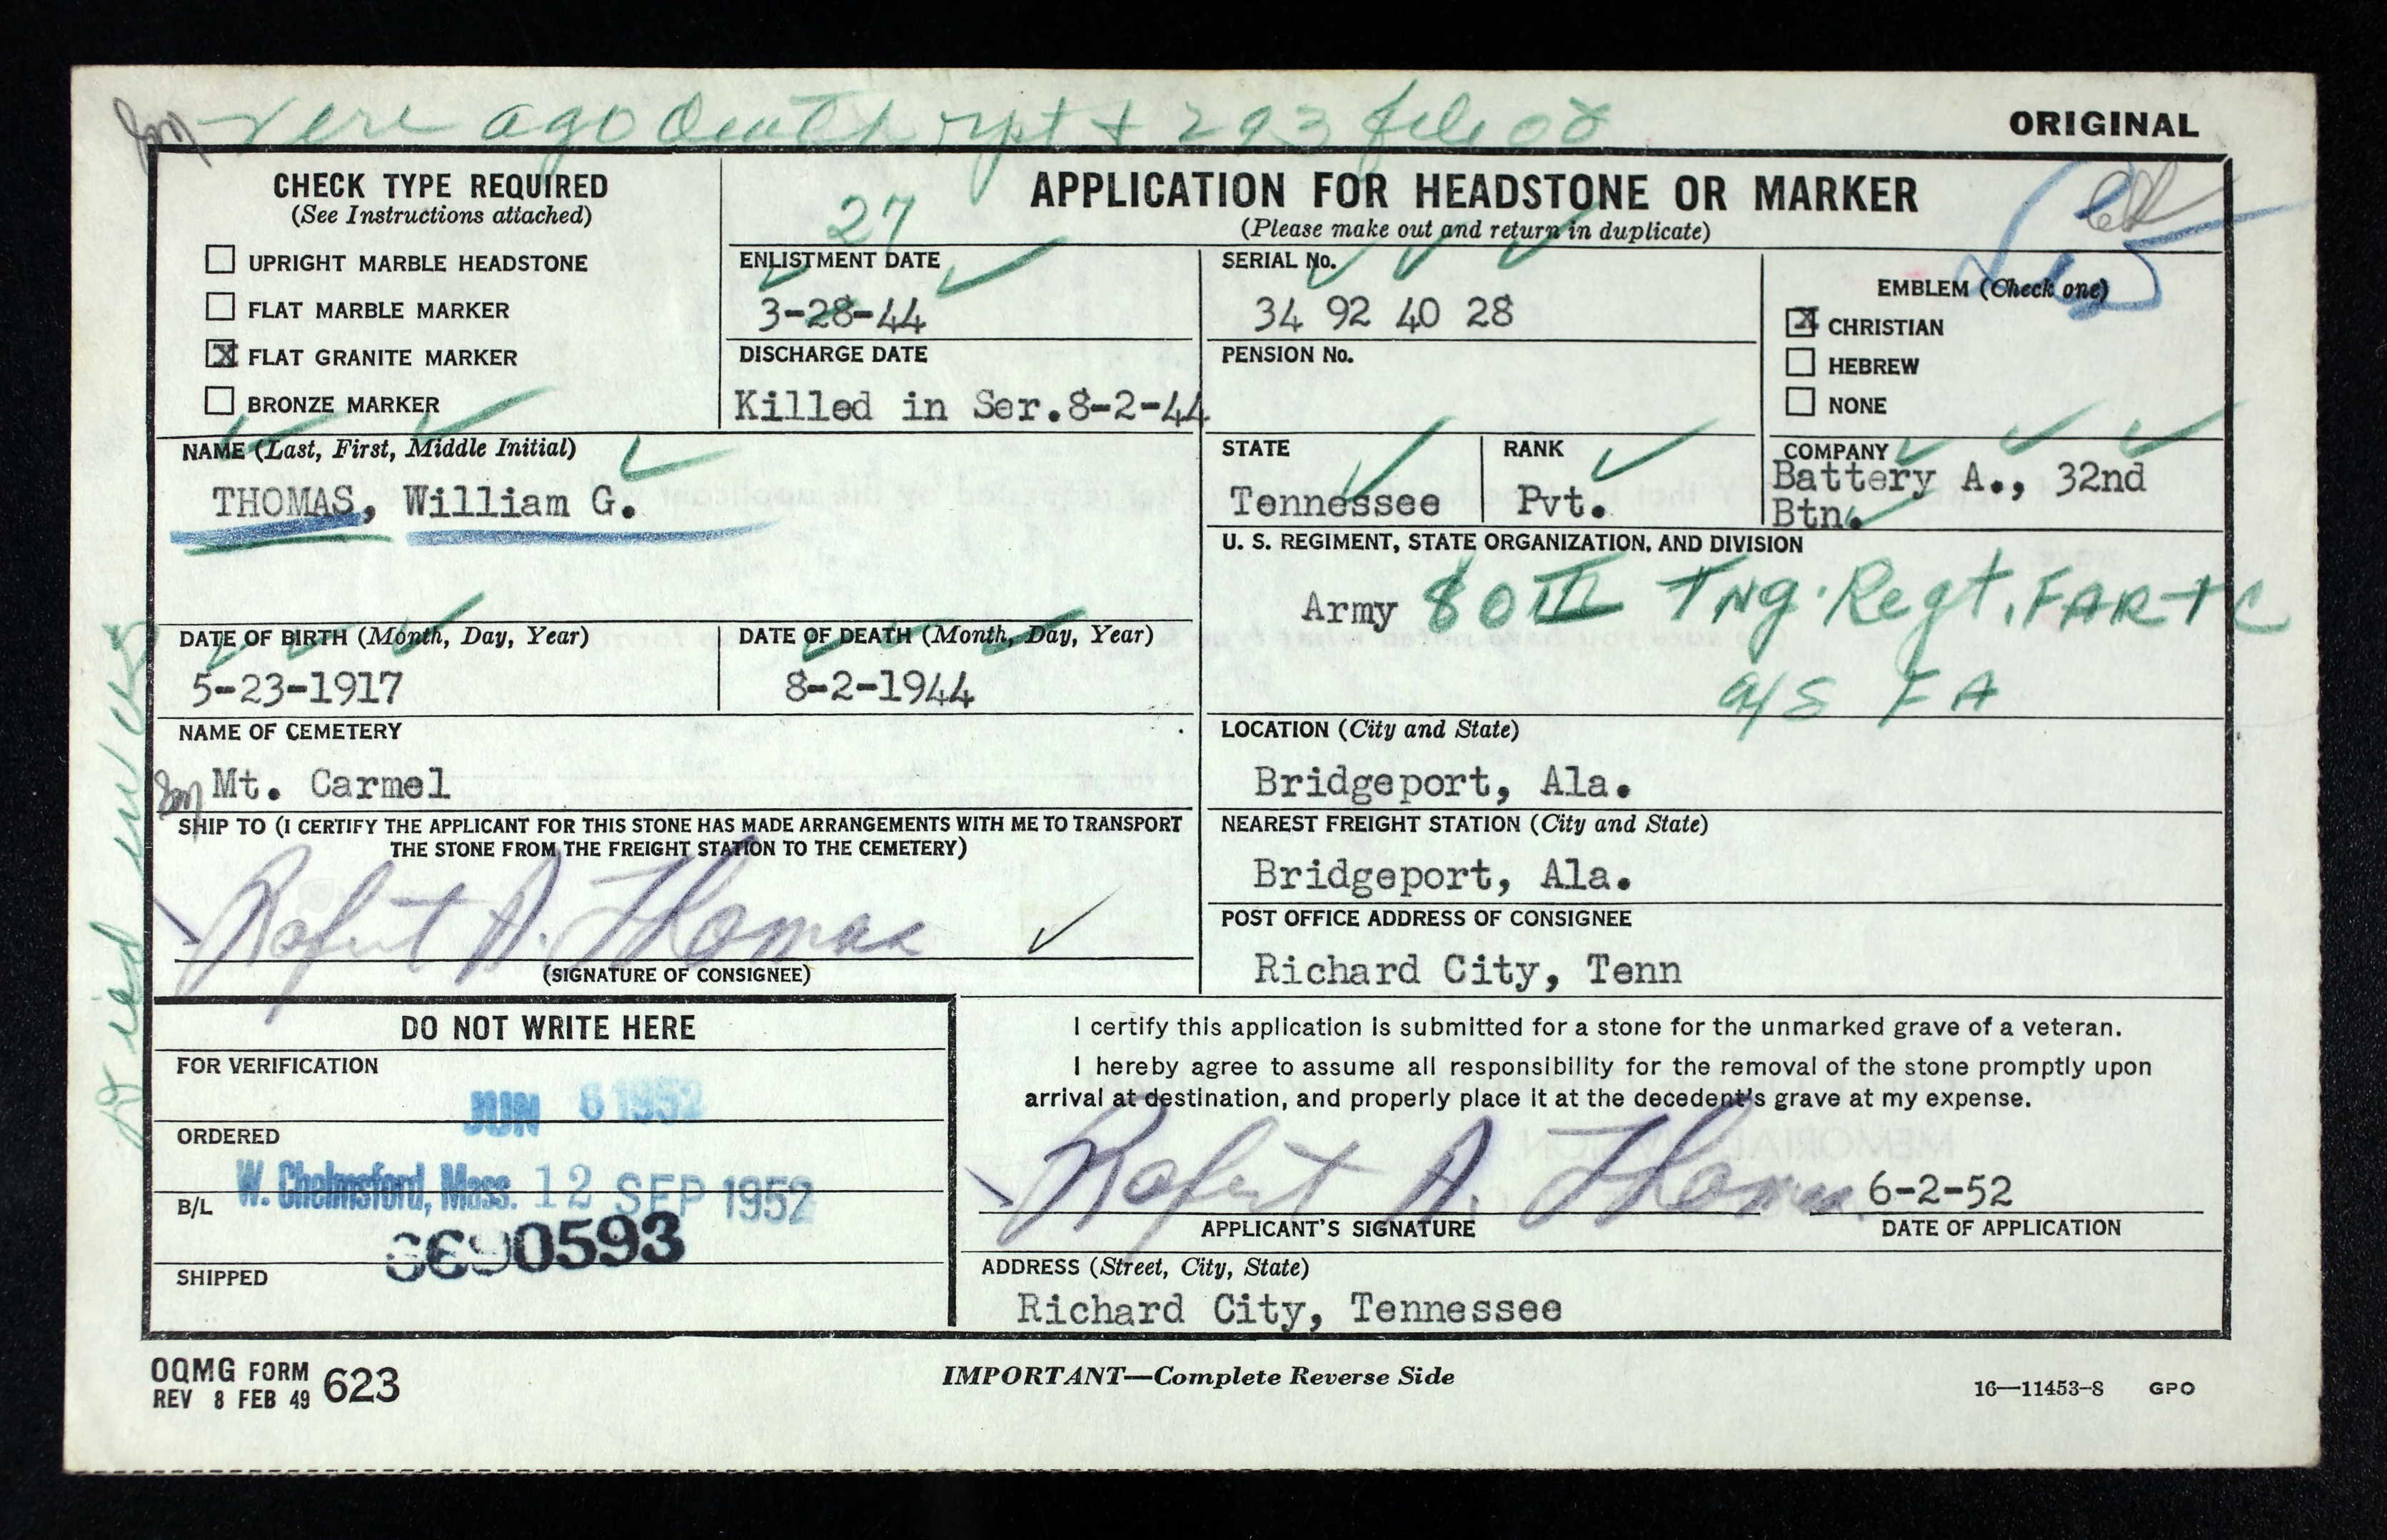 ORIGINAL
CHECK TYPE REQUIRED
(See Instructions attached)
UPRIGHT MARBLE HEADSTONE
FLAT MARBLE MARKER
X FLAT GRANITE MARKER
BRONZE MARKER
APPLICATION FOR HEADSTONE OR MARKER
(Please make out and return in duplicate)
27
ENLISTMENT DATE
3-28-44
DISCHARGE DATE
Killed in Ser.8-2-44
SERIAL No.
34 92 40 28
PENSION No.
EMBLEM (Check one)
X CHRISTIAN
HEBREW
NONE
NAME (Last, First, Middle Initial)
THOMAS, William G.
STATE
Tennessee
RANK
Pvt.
COMPANY
Battery A., 32nd
Btn.
U. S. REGIMENT, STATE ORGANIZATION, AND DIVISION
Army 80th Tng. Regt. FARTC
a/s FA
DATE OF BIRTH (Month, Day, Year)
5-23-1917
DATE OF DEATH (Month, Day, Year)
8-2-1944
NAME OF CEMETERY
Mt. Carmel
LOCATION (City and State)
Bridgeport, Ala.
SHIP TO (I CERTIFY THE APPLICANT FOR THIS STONE HAS MADE ARRANGEMENTS WITH ME TO TRANSPORT
THE STONE FROM THE FREIGHT STATION TO THE CEMETERY)
A. Thomas
(SIGNATURE OF CONSIGNEE)
NEAREST FREIGHT STATION (City and State)
Bridgeport, Ala.
POST OFFICE ADDRESS OF CONSIGNEE
Richard City, Tenn
DO NOT WRITE HERE
FOR VERIFICATION
JUN 6 1952
ORDERED
W. Chelmsford, Mass. 12 SEP 1952
B/L
0593
SHIPPED
I certify this application is submitted for a stone for the unmarked grave of a veteran.
I hereby agree to assume all responsibility for the removal of the stone promptly upon
arrival at destination, and properly place it at the decedent's grave at my expense.
A. Thomas 6-2-52
APPLICANT'S SIGNATURE DATE OF APPLICATION
ADDRESS (Street, City, State)
Richard City, Tennessee
OQMG FORM 623
REV 8 FEB 49
IMPORTANT—Complete Reverse Side
16—11453-8 GPO
Died in